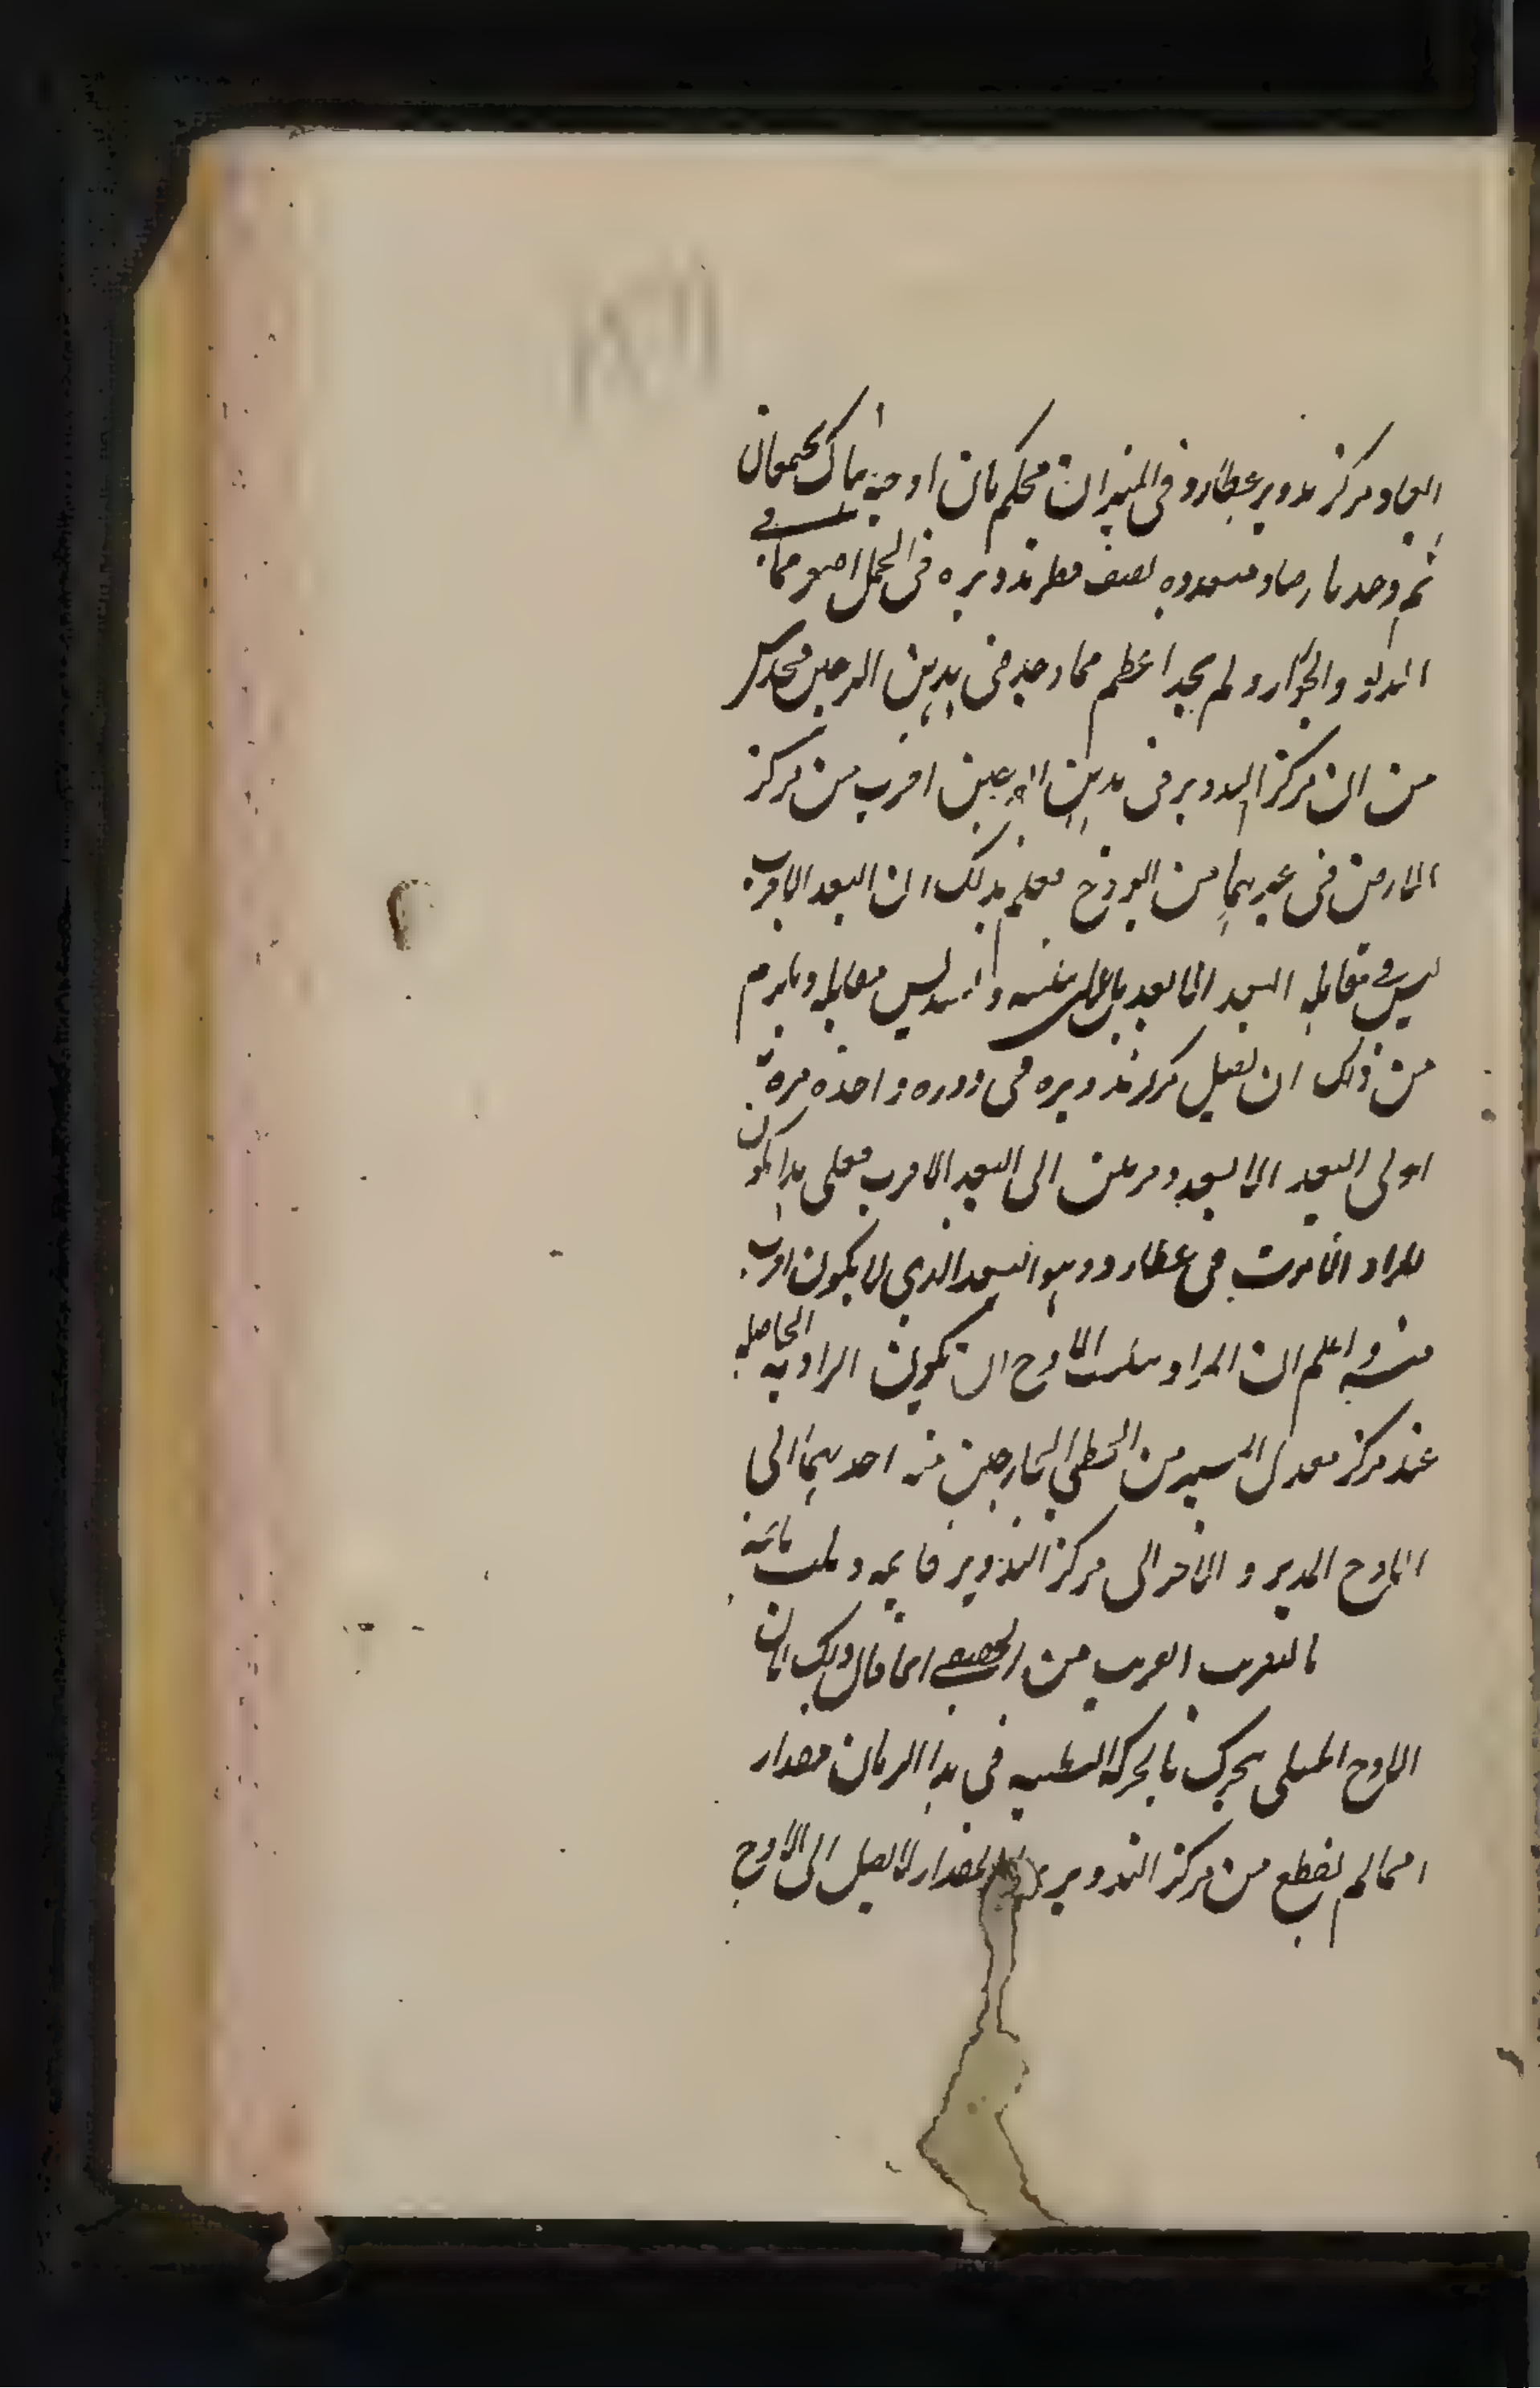 ابعاد مركز تدوير عطارد فى الميزان فحكم بان اوجيه هناك يجتمعان
ثم وجد بارصاد متعددة نصف قطر تدويره فى الحمل اصغر مما فى
الدلو والجوزا ولم يجد اعظم مما وجد فى هذين البرجين فحدس
من ان مركز التدوير فى هذين البرجين اقرب من مركز
الارض فى غيرهما من البروج فعلم بذلك ان البعد الاقرب
ليس فى مقابلة البعد الابعد بل فى تثليثيه وتسديس مقابله ويلزم
من ذلك ان يصل مركز تدويره فى دورة واحدة مرة
الى البعد الابعد ومرتين الى البعد الاقرب فعلى هذا يكون
المراد الاقرب فى عطارد وهو البعد الذى لا يكون اقرب
منه واعلم ان المراد بتثليث الاوج ان تكون الزاوية الحاصلة
عند مركز معدل المسير من الخطين الخارجين منه احدهما الى
الاوج المدير والاخر الى مركز التدوير قايمة وثلث قائمة
بالتقريب القريب من الحقيقى انما قال ذلك لان
الاوج الممثلى يتحرك بالحركة البطيئة فى هذا الزمان مقدار
امما لم يقطع من مركز التدوير المقدار لا يصل الى الاوج